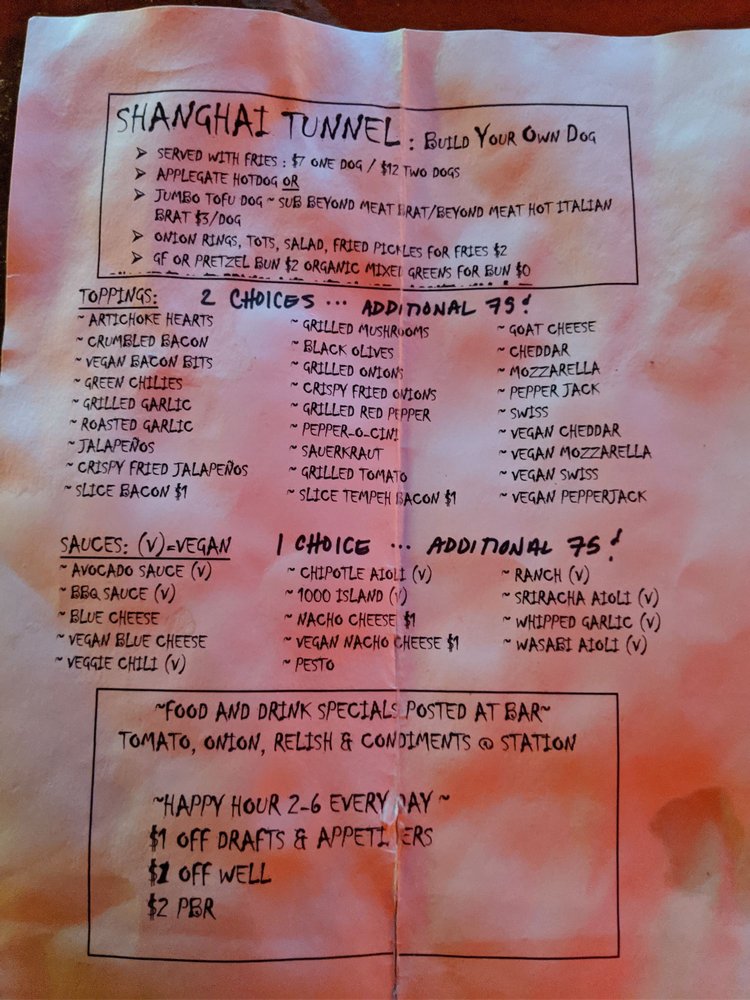 SHANGHAI TUNNEL : BUILD YOUR OWN DOG
➢ SERVED WITH FRIES : $7 ONE DOG / $12 TWO DOGS
➢ APPLEGATE HOTDOG OR
➢ JUMBO TOFU DOG ~ SUB BEYOND MEAT BRAT/BEYOND MEAT HOT ITALIAN
BRAT $3/DOG
➢ ONION RINGS, TOTS, SALAD, FRIED PICKLES FOR FRIES $2
➢ GF OR PRETZEL BUN $2 ORGANIC MIXED GREENS FOR BUN $0
TOPPINGS: 2 CHOICES ... ADDITIONAL 75¢
~ ARTICHOKE HEARTS
~ CRUMBLED BACON
~ VEGAN BACON BITS
~ GREEN CHILIES
~ GRILLED GARLIC
~ ROASTED GARLIC
~ JALAPEÑOS
~ CRISPY FRIED JALAPEÑOS
~ SLICE BACON $1
~ GRILLED MUSHROOMS
~ BLACK OLIVES
~ GRILLED ONIONS
~ CRISPY FRIED ONIONS
~ GRILLED RED PEPPER
~ PEPPER-O-CINI
~ SAUERKRAUT
~ GRILLED TOMATO
~ SLICE TEMPEH BACON $1
~ GOAT CHEESE
~ CHEDDAR
~ MOZZARELLA
~ PEPPER JACK
~ SWISS
~ VEGAN CHEDDAR
~ VEGAN MOZZARELLA
~ VEGAN SWISS
~ VEGAN PEPPERJACK
SAUCES: (V)=VEGAN 1 CHOICE ... ADDITIONAL 75¢
~ AVOCADO SAUCE (V)
~ BBQ SAUCE (V)
~ BLUE CHEESE
~ VEGAN BLUE CHEESE
~ VEGGIE CHILI (V)
~ CHIPOTLE AIOLI (V)
~ 1000 ISLAND (V)
~ NACHO CHEESE $1
~ VEGAN NACHO CHEESE $1
~ PESTO
~ RANCH (V)
~ SRIRACHA AIOLI (V)
~ WHIPPED GARLIC (V)
~ WASABI AIOLI (V)
~FOOD AND DRINK SPECIALS POSTED AT BAR~
TOMATO, ONION, RELISH & CONDIMENTS @ STATION
~HAPPY HOUR 2-6 EVERY DAY ~
$1 OFF DRAFTS & APPETIZERS
$1 OFF WELL
$2 PBR